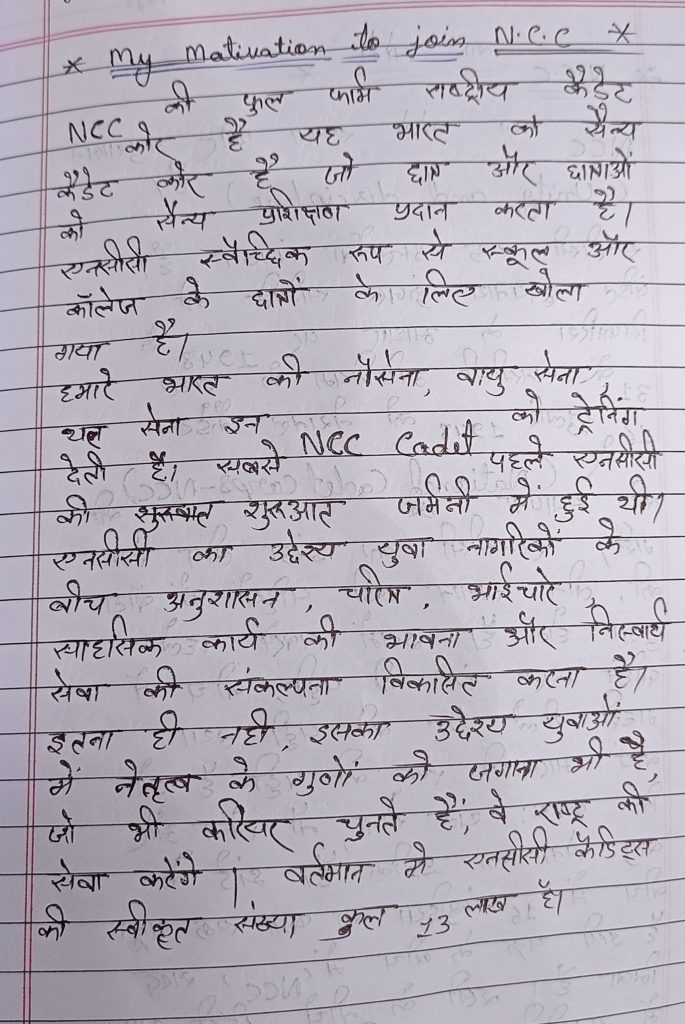 * My Motivation to join N.C.C *
की फुल फार्म राष्ट्रीय कैडेट
NCC कोर है यह भारत को सैन्य
कैडेट कोर है जो छात्र और छात्राओं
को सैन्य प्रशिक्षण प्रदान करता है।
एनसीसी स्वैच्छिक रूप से स्कूल और
कॉलेज के छात्रों के लिए खोला
गया है।
हमारे भारत की नौसेना, वायु सेना,
थल सेना इन NCC Cadet को ट्रेनिंग
देती है। सबसे पहले एनसीसी
की शुरुआत जर्मनी में हुई थी।
एनसीसी का उद्देश्य युवा नागरिकों के
बीच अनुशासन, चरित्र, भाईचारे,
साहसिक कार्य की भावना और निस्वार्थ
सेवा की संकल्पना विकसित करना है।
इतना ही नही, इसका उद्देश्य युवाओं
में नेतृत्व के गुणों को जगाना भी है,
जो भी करियर चुनते हैं, वे राष्ट्र की
सेवा करेंगे | वर्तमान मे एनसीसी कैडिट्स
की स्वीकृत संख्या कुल 13 लाख है।